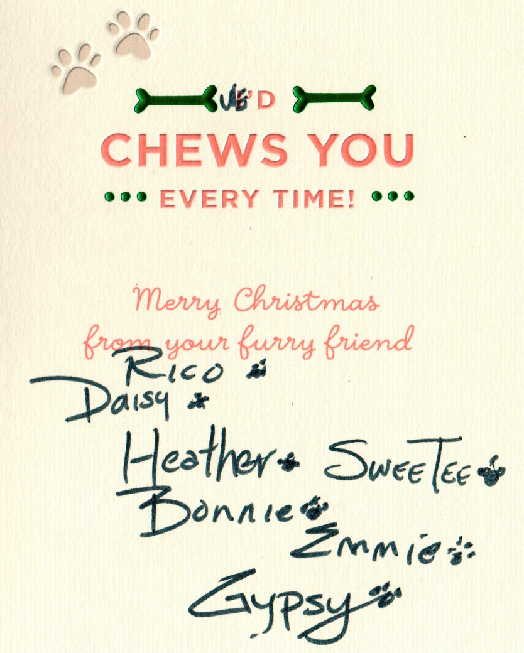 WE'D
CHEWS YOU
EVERY TIME!
Merry Christmas
from your furry friend
Rico
Daisy
Heather SweeTee
Bonnie
Emmie
Gypsy